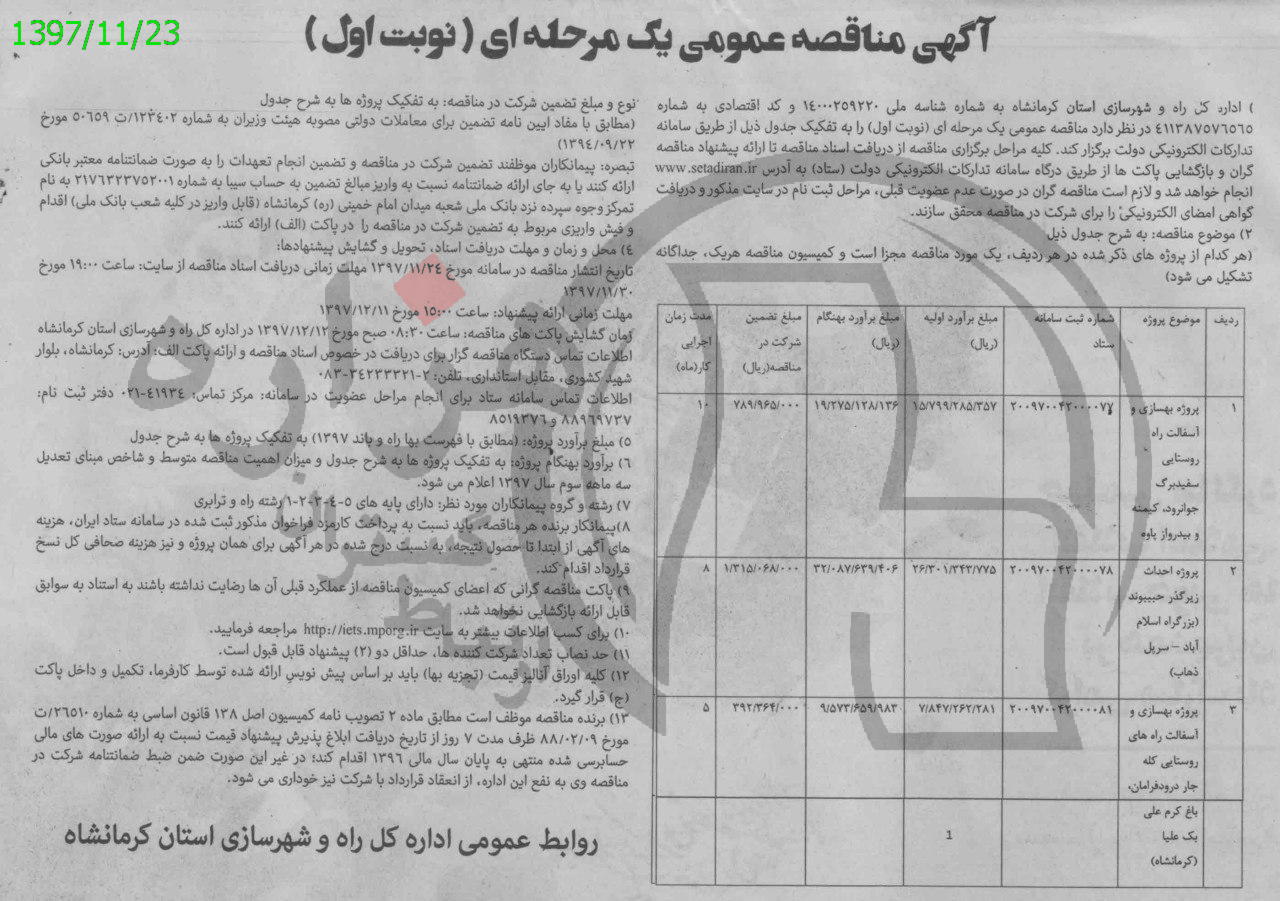 1397/11/23
آگهی مناقصه عمومی یک مرحله ای ( نوبت اول )
) اداره کل راه و شهرسازی استان کرمانشاه به شماره شناسه ملی ١٤٠٠٠٢٥٩٢٢٠ و کد اقتصادی به شماره
٤١١٣٨٧٥٧٦٥٦٥ در نظر دارد مناقصه عمومی یک مرحله ای (نوبت اول) را به تفکیک جدول ذیل از طریق سامانه
تدارکات الکترونیکی دولت برگزار کند. کلیه مراحل برگزاری مناقصه از دریافت اسناد مناقصه تا ارائه پیشنهاد مناقصه
گران و بازگشایی پاکت ها از طریق درگاه سامانه تدارکات الکترونیکی دولت (ستاد) به آدرس www.setadiran.ir
انجام خواهد شد و لازم است مناقصه گران در صورت عدم عضویت قبلی، مراحل ثبت نام در سایت مذکور و دریافت
گواهی امضای الکترونیکی را برای شرکت در مناقصه محقق سازند.
٢) موضوع مناقصه: به شرح جدول ذیل
(هر کدام از پروژه های ذکر شده در هر ردیف، یک مورد مناقصه مجزا است و کمیسیون مناقصه هریک، جداگانه
تشکیل می شود)
ردیف موضوع پروژه شماره ثبت سامانه ستاد مبلغ برآورد اولیه (ریال) مبلغ برآورد بهنگام (ریال) مبلغ تضمین شرکت در مناقصه(ریال) مدت زمان اجرایی کار(ماه)
١ پروژه بهسازی و ٢٠٠٩٧٠٠٤٢٠٠٠٠٧٧ ١٥/٧٩٩/٢٨٥/٣٥٧ ١٩/٢٧٥/١٢٨/١٣۶ ٧٨٩/٩۶٥/٠٠٠ ١٠
آسفالت راه
روستایی
سفیدبرگ
جوانرود، کیمنه
و بیدرواز پاوه
٢ پروژه احداث ٢٠٠٩٧٠٠٤٢٠٠٠٠٧٨ ٢۶/٣٠١/٣٤٣/٧٧٥ ٣٢/٠٨٧/۶٣٩/٤٠۶ ١/٣١٥/٠۶٨/٠٠٠ ٨
زیرگذر حبیبوند
(بزرگراه اسلام
آباد – سرپل
ذهاب)
٣ پروژه بهسازی و ٢٠٠٩٧٠٠٤٢٠٠٠٠٨١ ٧/٨٤٧/٢۶٢/٢٨١ ٩/٥٧٣/۶٥٩/٩٨٣ ٣٩٢/٣۶٤/٠٠٠ ٥
آسفالت راه های
روستایی کله
جار درودفرامان،
باغ کرم علی
بک علیا
(کرمانشاه)
1
نوع و مبلغ تضمین شرکت در مناقصه: به تفکیک پروژه ها به شرح جدول
(مطابق با مفاد ایین نامه تضمین برای معاملات دولتی مصوبه هیئت وزیران به شماره ١٢٣٤٠٢/ت ٥٠٦٥٩ مورخ
١٣٩٤/٠٩/٢٢)
تبصره: پیمانکاران موظفند تضمین شرکت در مناقصه و تضمین انجام تعهدات را به صورت ضمانتنامه معتبر بانکی
ارائه کنند یا به جای ارائه ضمانتنامه نسبت به واریز مبالغ تضمین به حساب سیبا به شماره ٢١٧٦٣٢٣٧٥٢٠٠١ به نام
تمرکز وجوه سپرده نزد بانک ملی شعبه میدان امام خمینی (ره) کرمانشاه (قابل واریز در کلیه شعب بانک ملی) اقدام
و فیش واریزی مربوط به تضمین شرکت در مناقصه را در پاکت (الف) ارائه کنند.
٤) محل و زمان و مهلت دریافت اسناد، تحویل و گشایش پیشنهادها:
تاریخ انتشار مناقصه در سامانه مورخ ١٣٩٧/١١/٢٤ مهلت زمانی دریافت اسناد مناقصه از سایت: ساعت ١٩:٠٠ مورخ
١٣٩٧/١١/٣٠
مهلت زمانی ارائه پیشنهاد: ساعت ١٥:٠٠ مورخ ١٣٩٧/١٢/١١
زمان گشایش پاکت های مناقصه: ساعت ٠٨:٣٠ صبح مورخ ١٣٩٧/١٢/١٢ در اداره کل راه و شهرسازی استان کرمانشاه
اطلاعات تماس دستگاه مناقصه گزار برای دریافت در خصوص اسناد مناقصه و ارائه پاکت الف: آدرس: کرمانشاه، بلوار
شهید کشوری، مقابل استانداری، تلفن: ٢-٣٤٢٣٣٣٢١-٠٨٣
اطلاعات تماس سامانه ستاد برای انجام مراحل عضویت در سامانه: مرکز تماس: ٤١٩٣٤-٠٢١ دفتر ثبت نام:
٨٨٩٦٩٧٣٧ و ٨٥١٩٣٧٦
٥) مبلغ برآورد پروژه: (مطابق با فهرست بها راه و باند ١٣٩٧) به تفکیک پروژه ها به شرح جدول
٦) برآورد بهنگام پروژه: به تفکیک پروژه ها به شرح جدول و میزان اهمیت مناقصه متوسط و شاخص مبنای تعدیل
سه ماهه سوم سال ١٣٩٧ اعلام می شود.
٧) رشته و گروه پیمانکاران مورد نظر: دارای پایه های ٥-٤-٣-٢-١ رشته راه و ترابری
٨)پیمانکار برنده هر مناقصه، باید نسبت به پرداخت کارمزد فراخوان مذکور ثبت شده در سامانه ستاد ایران، هزینه
های آگهی از ابتدا تا حصول نتیجه، به نسبت درج شده در هر آگهی برای همان پروژه و نیز هزینه صحافی کل نسخ
قرارداد اقدام کند.
٩) پاکت مناقصه گرانی که اعضای کمیسیون مناقصه از عملکرد قبلی آن ها رضایت نداشته باشند به استناد به سوابق
قابل ارائه بازگشایی نخواهد شد.
١٠) برای کسب اطلاعات بیشتر به سایت http://iets.mporg.ir مراجعه فرمایید.
١١) حد نصاب تعداد شرکت کننده ها، حداقل دو (٢) پیشنهاد قابل قبول است.
١٢) کلیه اوراق آنالیز قیمت (تجزیه بها) باید بر اساس پیش نویس ارائه شده توسط کارفرما، تکمیل و داخل پاکت
(ج) قرار گیرد.
١٣) برنده مناقصه موظف است مطابق ماده ٢ تصویب نامه کمیسیون اصل ١٣٨ قانون اساسی به شماره ٢٦٥١٠/ت
مورخ ٨٨/٠٢/٠٩ ظرف مدت ٧ روز از تاریخ دریافت ابلاغ پذیرش پیشنهاد قیمت نسبت به ارائه صورت های مالی
حسابرسی شده منتهی به پایان سال مالی ١٣٩٦ اقدام کند؛ در غیر این صورت ضمن ضبط ضمانتنامه شرکت در
مناقصه وی به نفع این اداره، از انعقاد قرارداد با شرکت نیز خوداری می شود.
روابط عمومی اداره کل راه و شهرسازی استان کرمانشاه